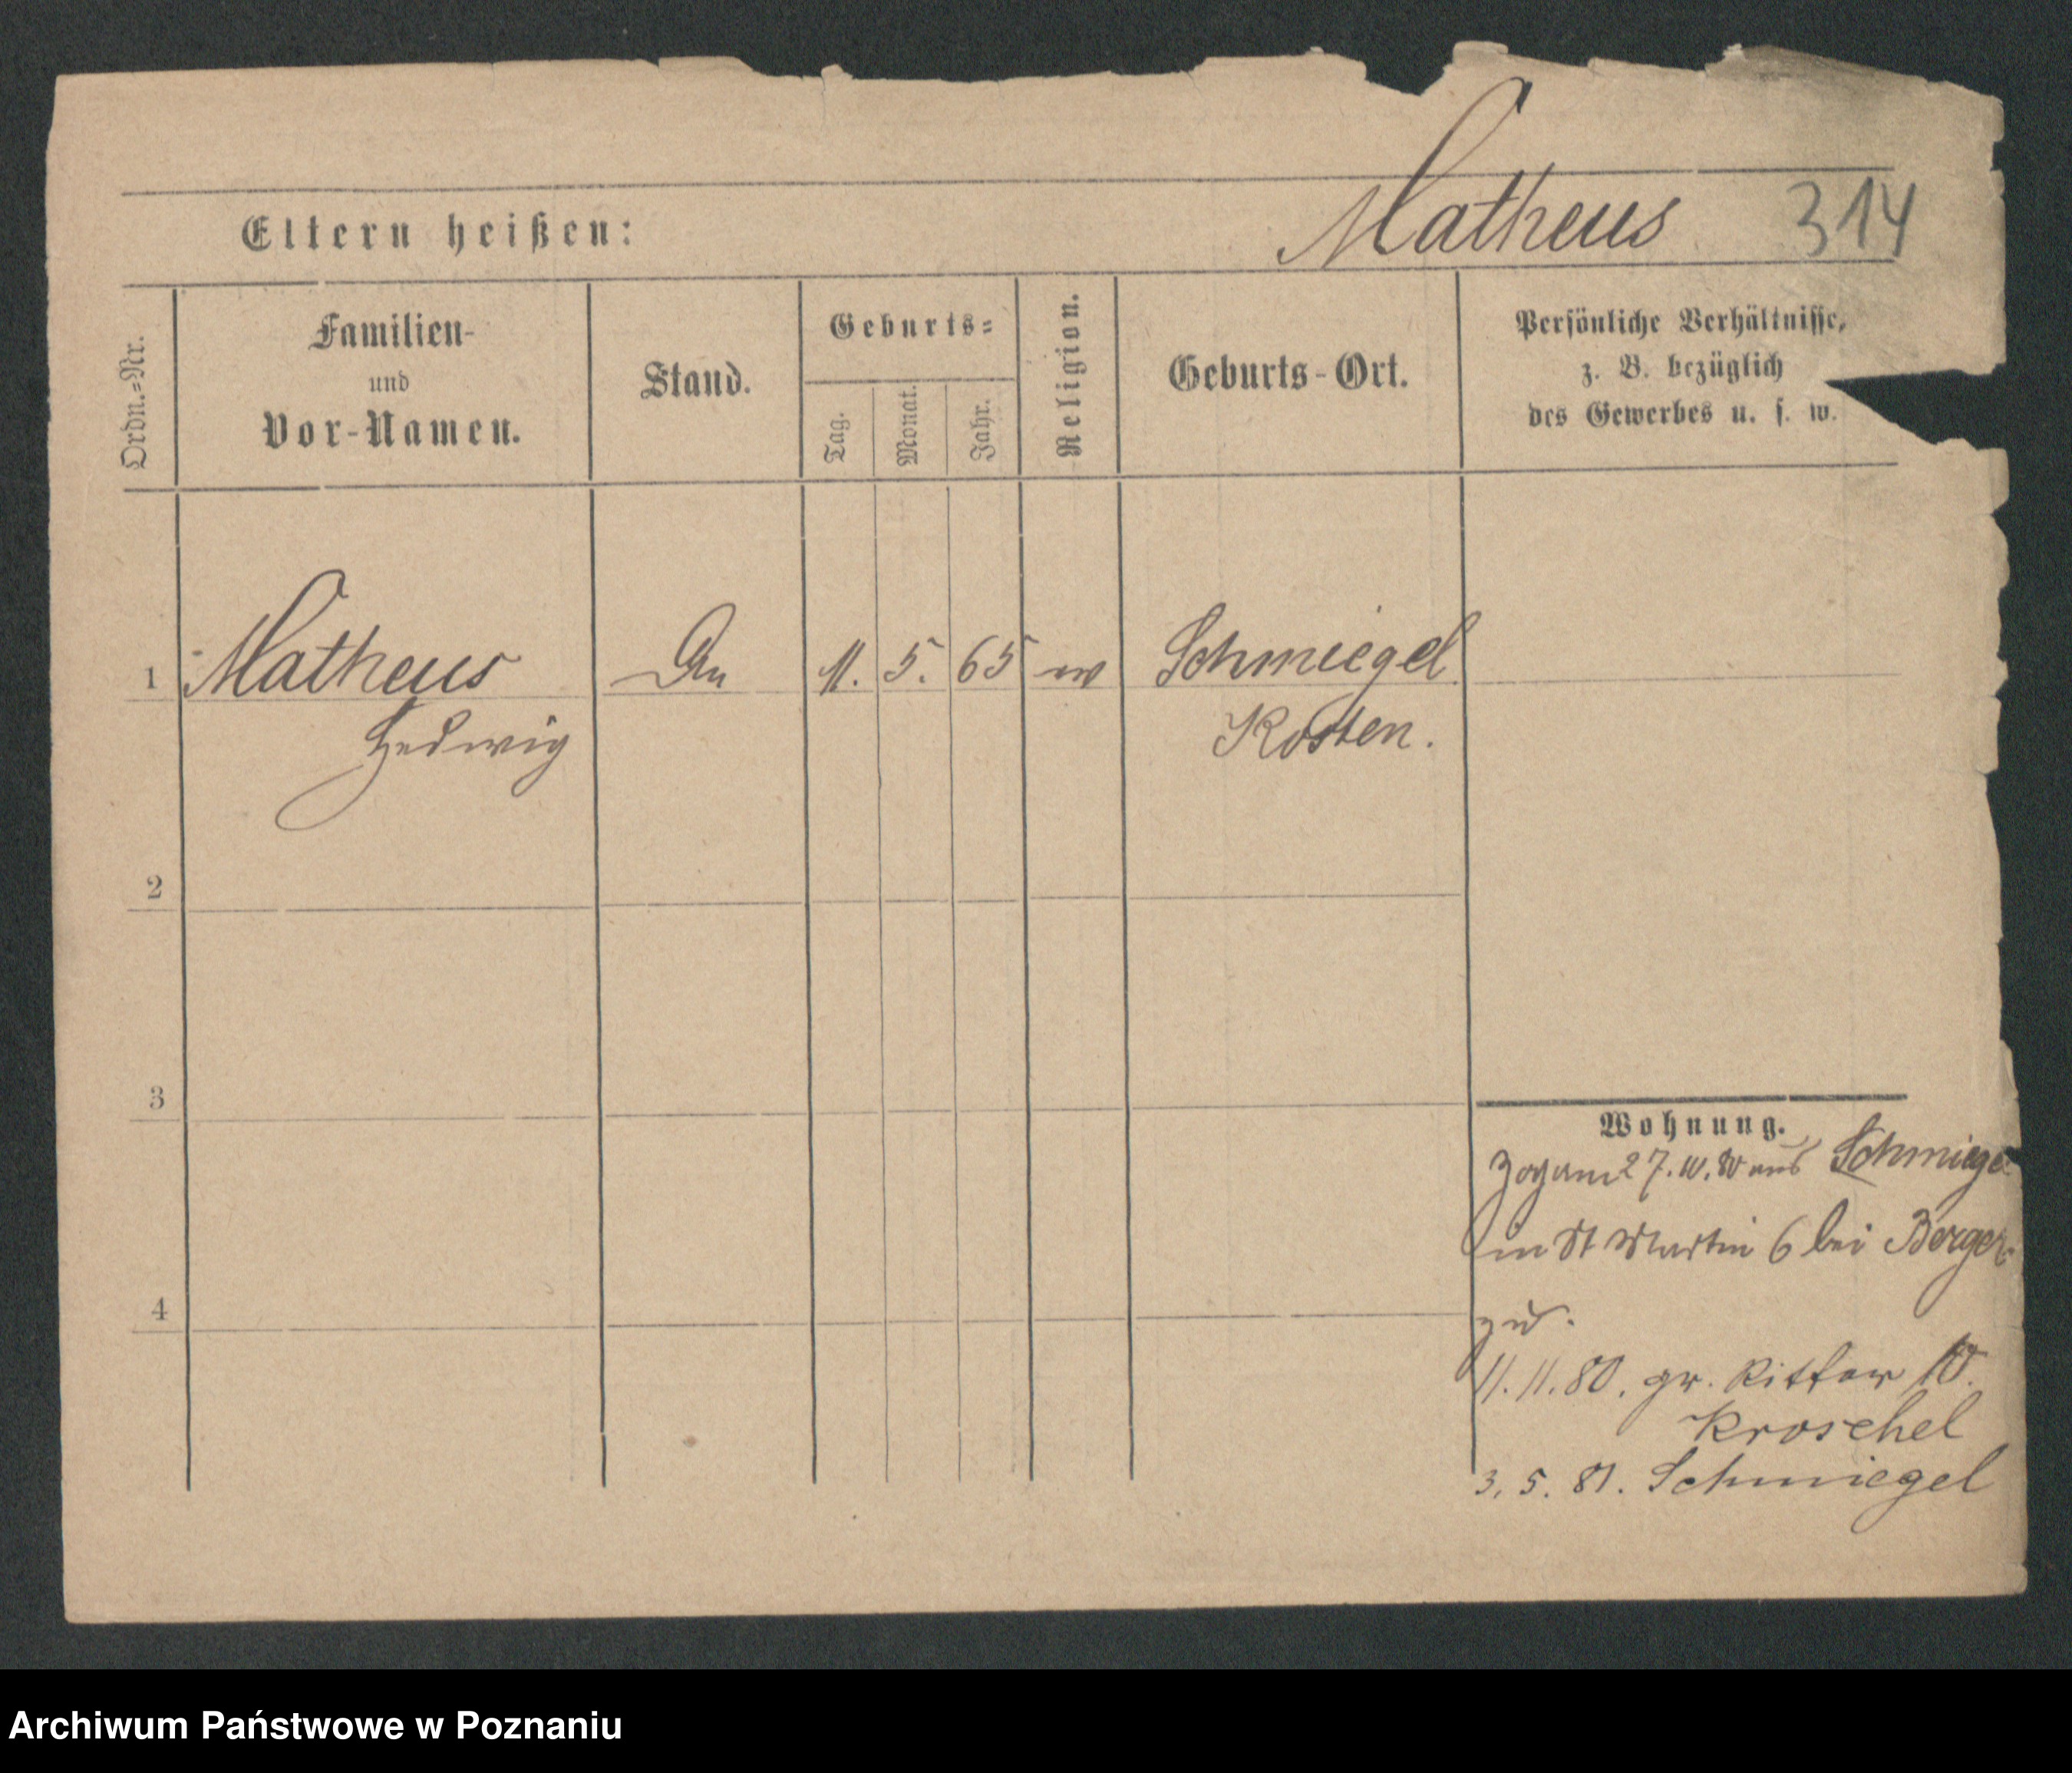 Matheus 314
Eltern heißen:
Ordn.=Nr.
Familien-
und
Vor-Namen.
Stand.
Geburts=
Tag.
Monat.
Jahr.
Religion.
Geburts-Ort.
Persönliche Verhältnisse,
z. B. bezüglich
des Gewerbes u. s. w.
1 Matheus 11. 5. 65 Schmiegel
Hedwig Kosten.
2
3
4
Wohnung.
Zog am 27. 10. 80 aus Schmiege
in St Martin 6 bei Berger
zu.
11. 11. 80. gr. Ritter 10.
Kroschel
3. 5. 81. Schmiegel
Archiwum Państwowe w Poznaniu